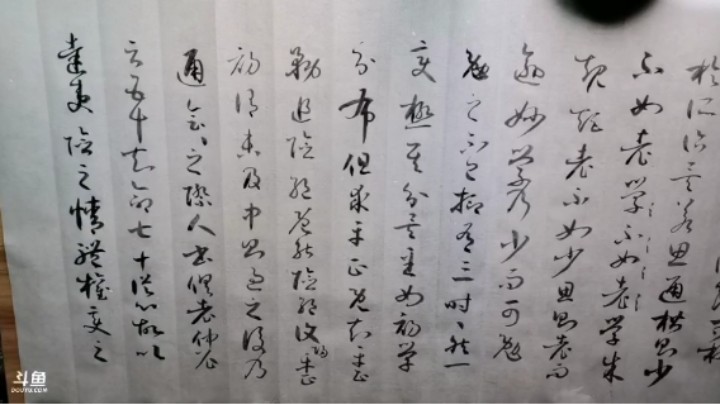 思通楷則少
不如老學不如老學成
規矩老不如少思則老而
逾妙學乃少而可勉
勉之不已抑有三時〻然一
變極其分矣至如初學
分布但求平正既知平正
務追險絕既能險絕復歸平正
初謂未及中則過之後乃
通會〻之際人書俱老仲尼
云五十知命七十從心故以
達夷險之情體權變之
斗鱼
DOUYU.COM